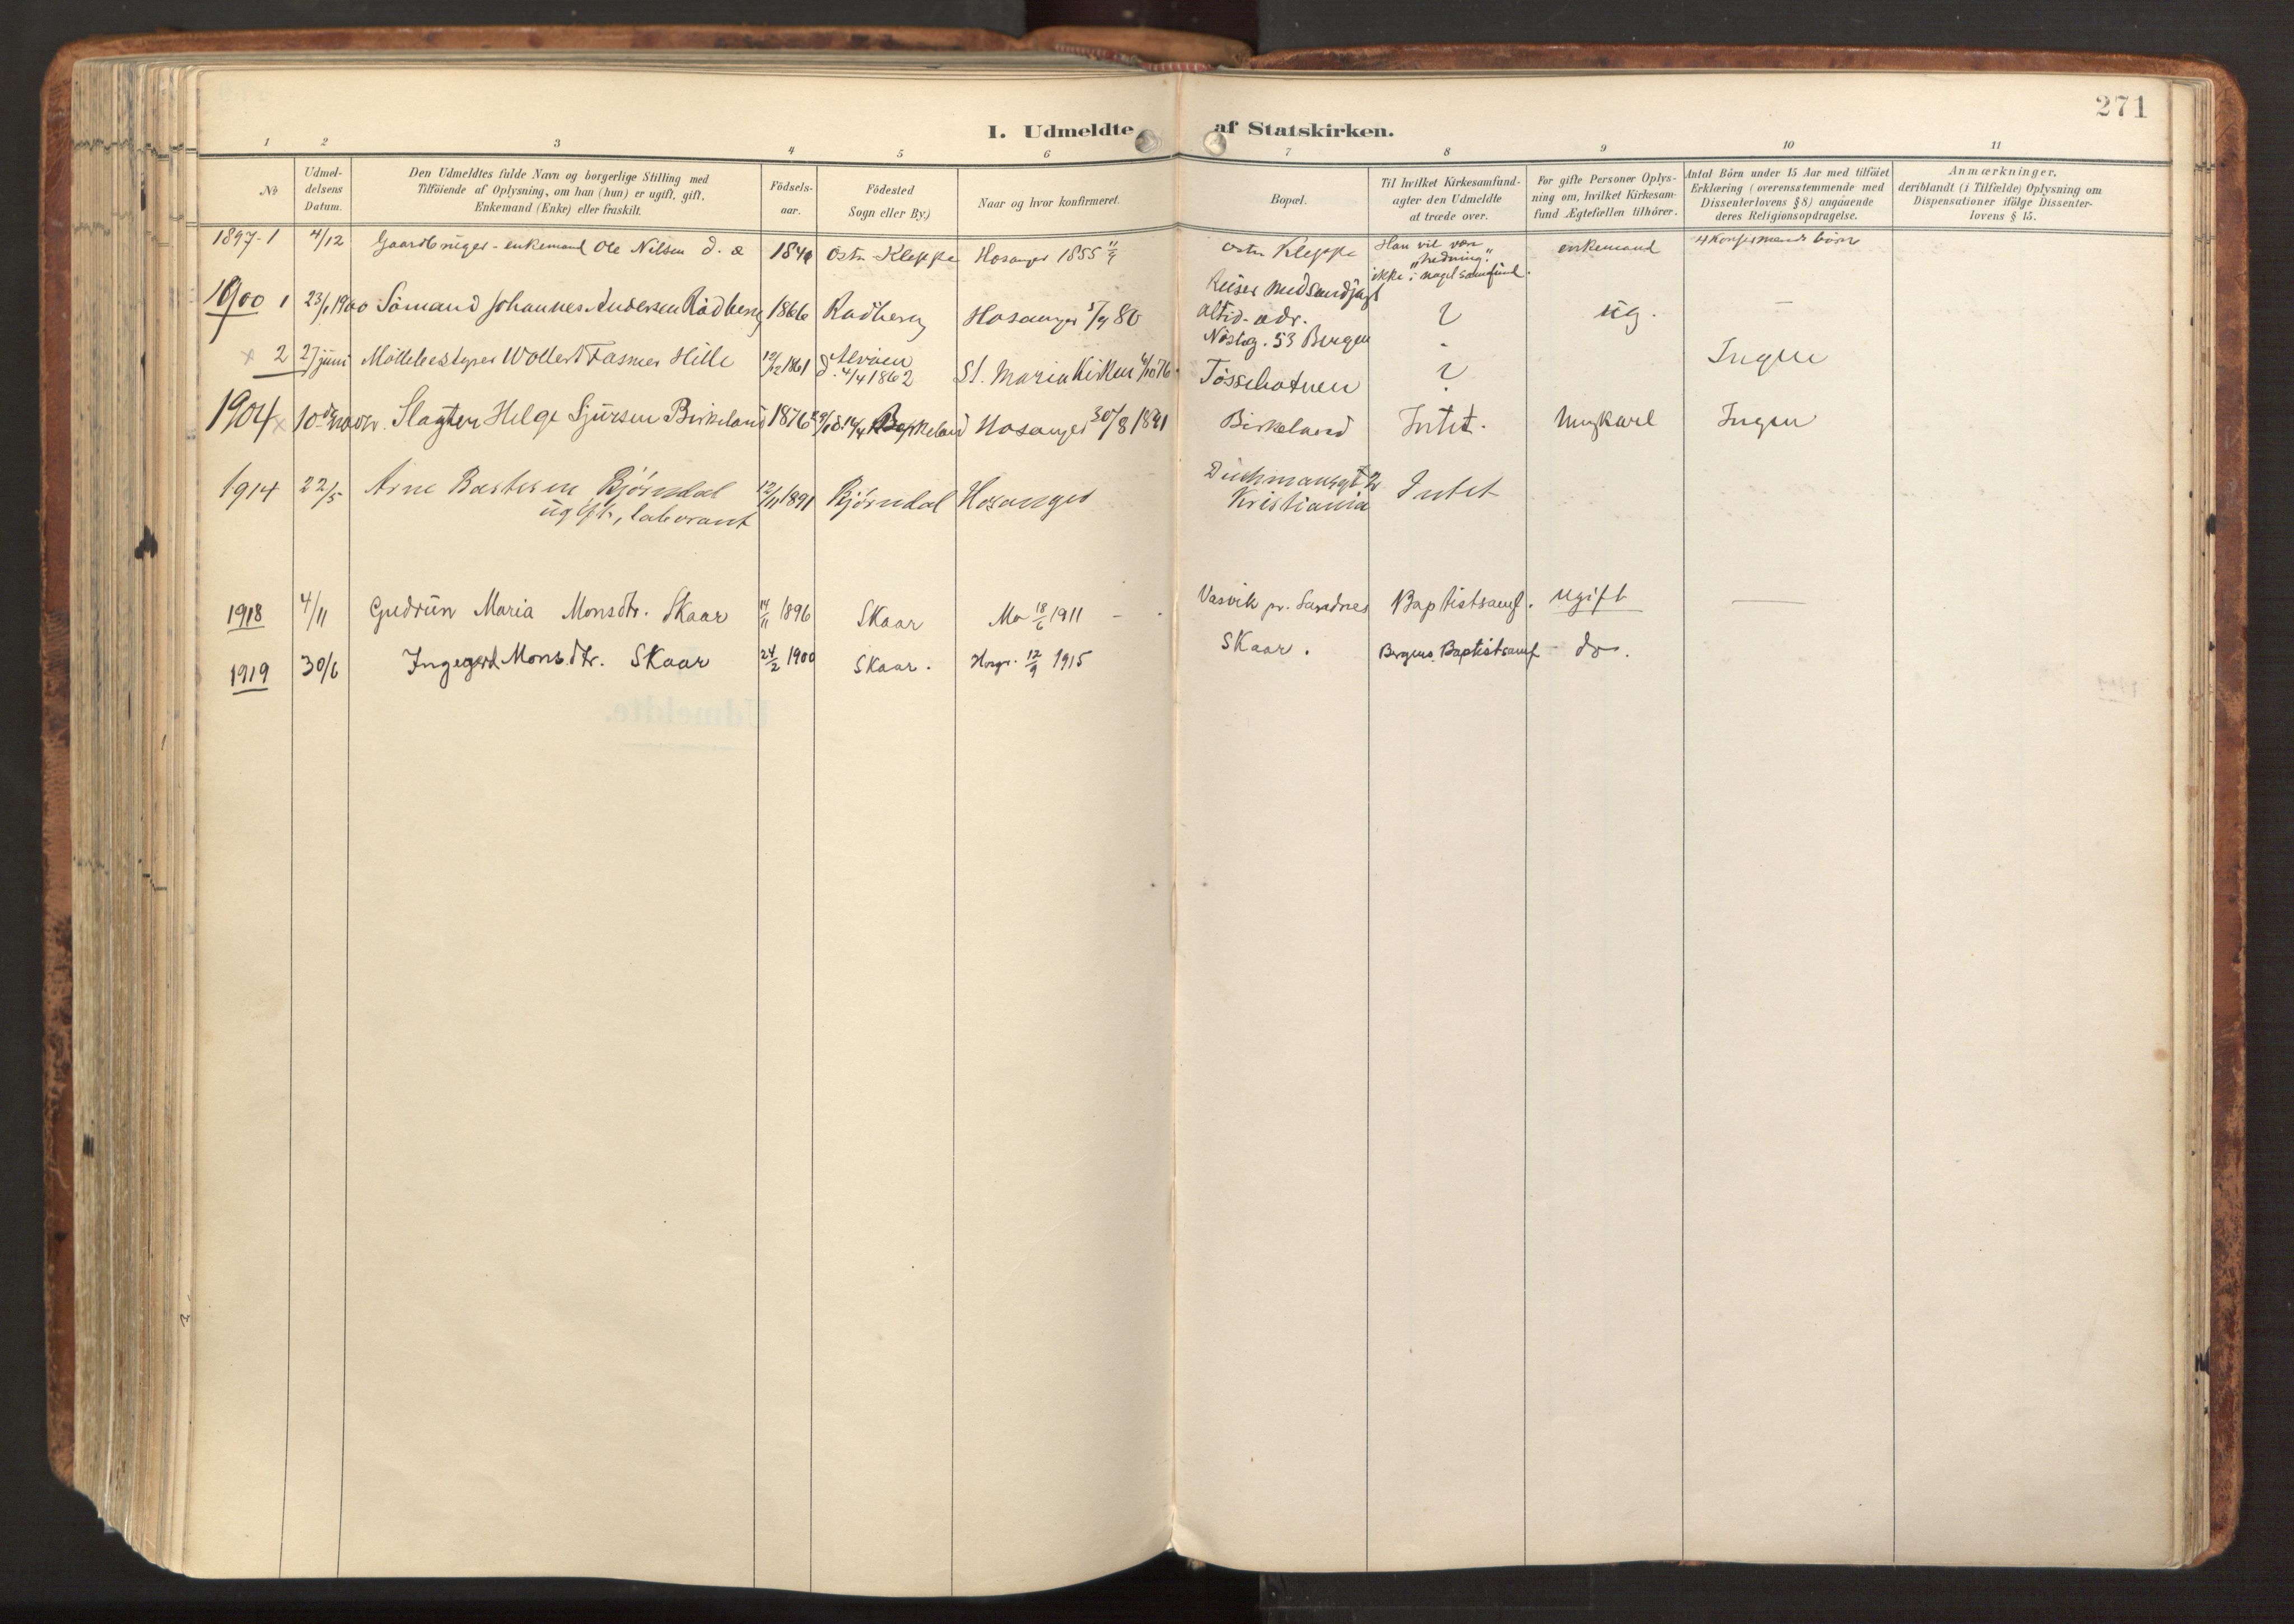 271
I. Udmeldte af Statskirken.
1 2 3 4 5 6 7 8 9 10 11
No
Udmel-
delsens
Datum.
Den Udmeldtes fulde Navn og borgerlige Stilling med
Tilföiende af Oplysning, om han (hun) er ugift, gift,
Enkemand (Enke) eller fraskilt.
Födsels-
aar.
Födested
Sogn eller By.)
Naar og hvor konfirmeret.
Bopæl.
Til hvilket Kirkesamfund-
agter den Udmeldte
at træde over.
For gifte Personer Oplys-
ning om, hvilket Kirkesam-
fund Ægtefællen tilhörer.
Antal Börn under 15 Aar med tilföiet
Erklæring (overensstemmende med
Dissenterlovens § 8) angaaende
deres Religionsopdragelse.
Anmærkninger,
deriblandt (i Tilfælde) Oplysning om
Dispensationer ifölge Dissenter-
lovens § 15.
1897-1 4/12 Gaardbruger - enkemand Ole Nilsen d. æ 1840 Østr Kleppe Hosanger 1855 Østr Kleppe
Han vil være
„hedning"
ikke i noget samfund.
enkemand
4 Konfirmerede børn
1900 1 23/1 1900 Sömand Johannes Andersen Rödberg 1866 Radberg Hosanger 5/9 80
Reiser med
altid - adr.
Nösteg. 53 Bergen
? ug. —
x 2 27 juni Möllebestyrer Wollert Fasmer Hille 12/12 1861 Alvöen
d. 4/4 1862
St. Maria Kirken 4/10 76 Tösseholmen ? Ingen
1904 x 10de novbr. Slagter Helge Sjursen Birkeland 1876 Birkeland Hosanger 30/8 1891 Birkeland Intet. Ungkarl Ingen
1914 22/5 Arne Bastesen Björndal
ugift, laborant
12/11 1891 Björndal Hosanger
Kristiania
Intet
1918 4/11 Gudrun Maria Monsdtr. Skaar 14/11 1896 Skaar Mo 18/6 1911 - Vasvik pr. Sandnes Baptistsamf. Ugift —
1919 30/6 Ingegerd Monsdtr. Skaar 24/2 1900 Skaar. Hosgr. 12/9 1915 Skaar. Bergens Baptistsamf do.